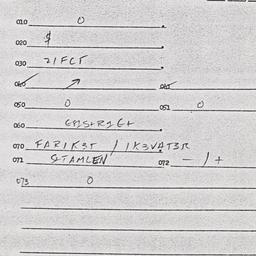 010 0
020 $
030 21FCT
040 041
050 0 051 0
060
070 FARIK3T / 1K3VAT3R
071 STAMLEN 072 - / +
073 0